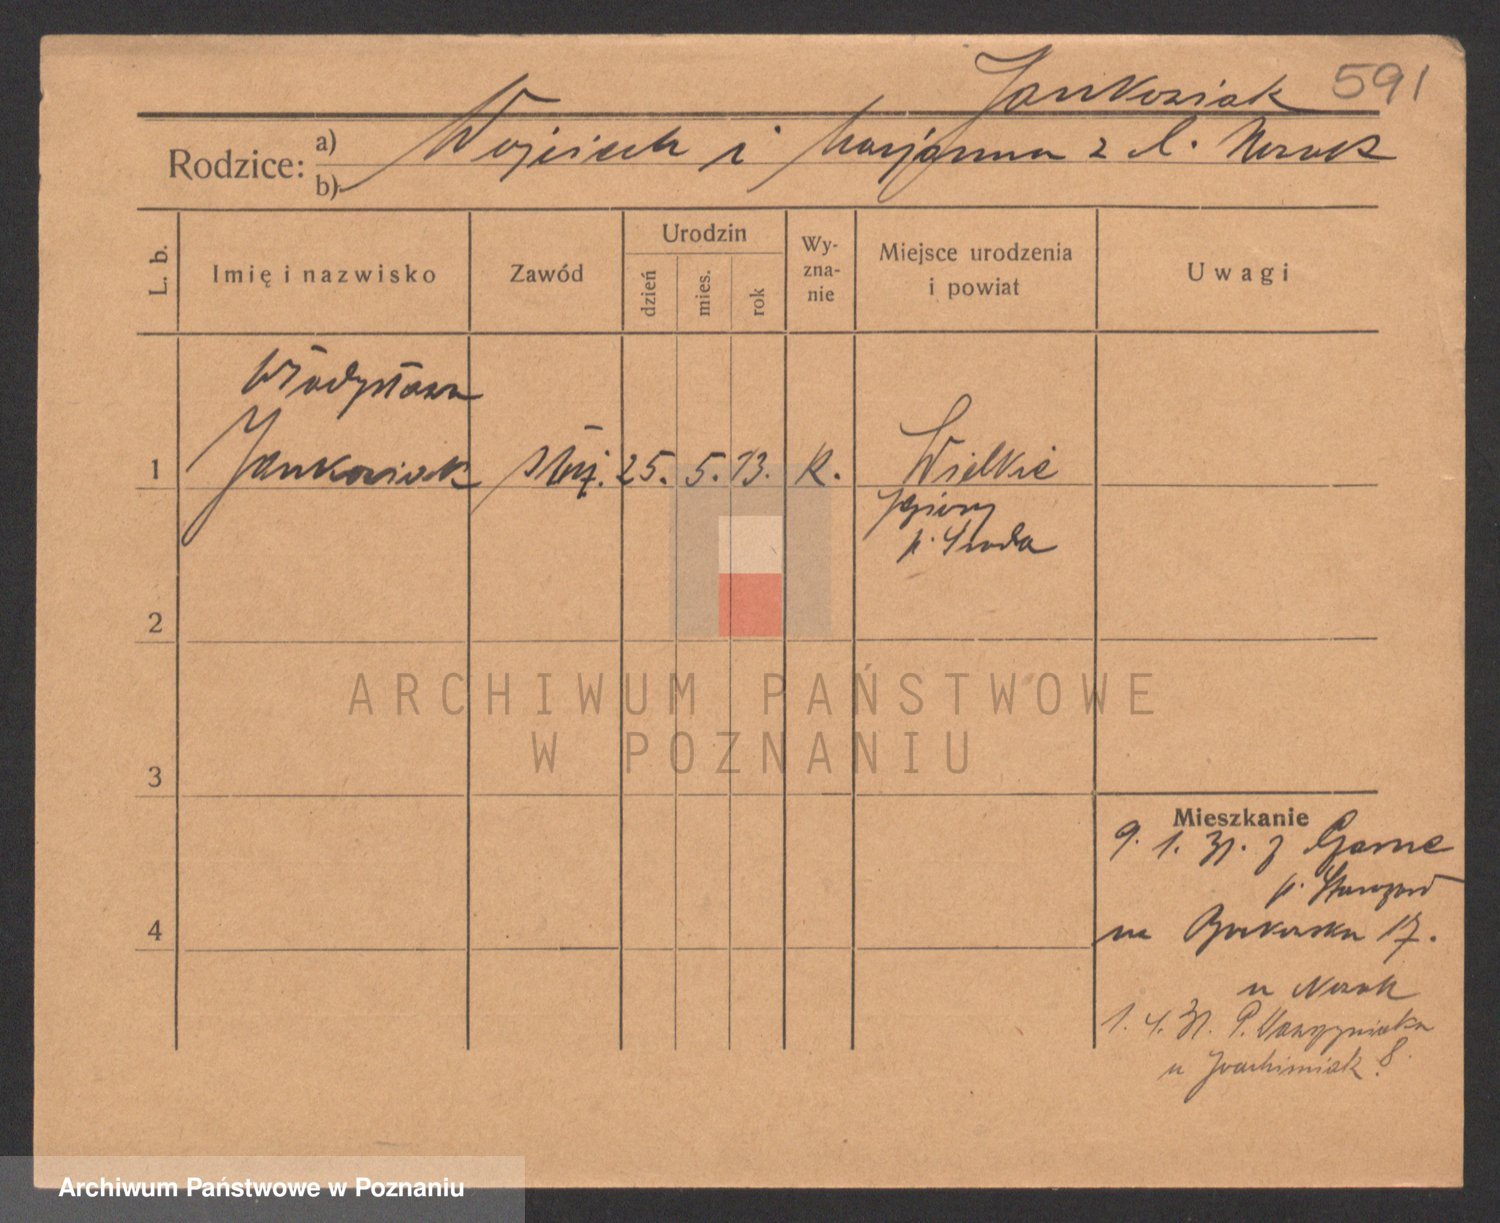 Jankowiak 591
Rodzice: a) b) Wojciech i Marjanna z d. Nowak
L. b.
Imię i nazwisko
Zawód
Urodzin
dzień
mies.
rok
Wy-
zna-
nie
Miejsce urodzenia
i powiat
Uwagi
Władysława
1 Jankowiak służ. 25. 5. 13. R. Wielkie
Jeziory
p. Środa
2
3
4
Mieszkanie
9. 1. 31. z
p. Starogard
na 17.
u Nowak
1. 4. 31. P. Wawrzyniaka
u Joachimiak 8.
ARCHIWUM PAŃSTWOWE
W POZNANIU
Archiwum Państwowe w Poznaniu